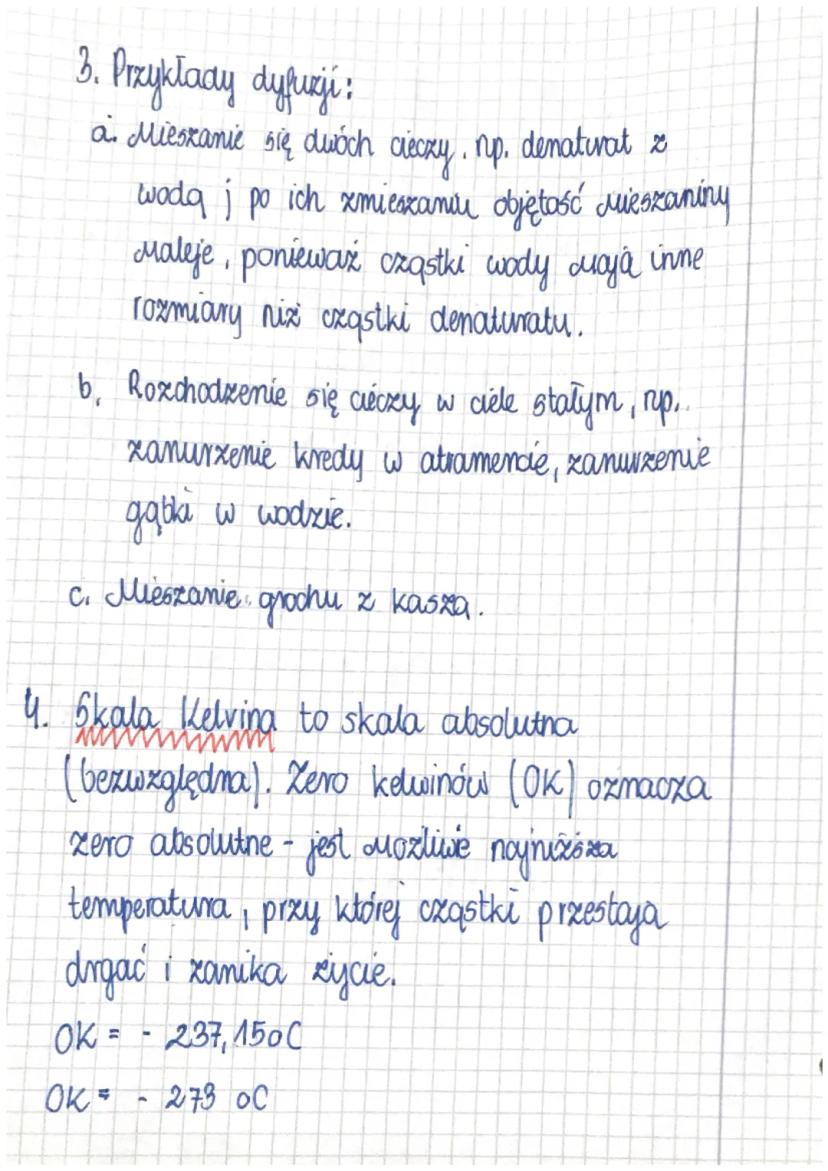 3. Przykłady dyfuzji:
a. Mieszanie się dwóch cieczy, np. denaturat z
wodą ; po ich zmieszaniu objętość mieszaniny
maleje, ponieważ cząstki wody mają inne
rozmiary niż cząstki denaturatu.
b. Rozchodzenie się cieczy w ciele stałym, np.
zanurzenie kredy w atramencie, zanurzenie
gąbki w wodzie.
c. Mieszanie grochu z kaszą.
4. Skala Kelvina to skala absolutna
(bezwzględna). Zero kelwinów (0K) oznacza
zero absolutne - jest możliwie najniższa
temperatura, przy której cząstki przestają
drgać i zanika życie.
0K = - 237,15oC
0K = - 273 oC